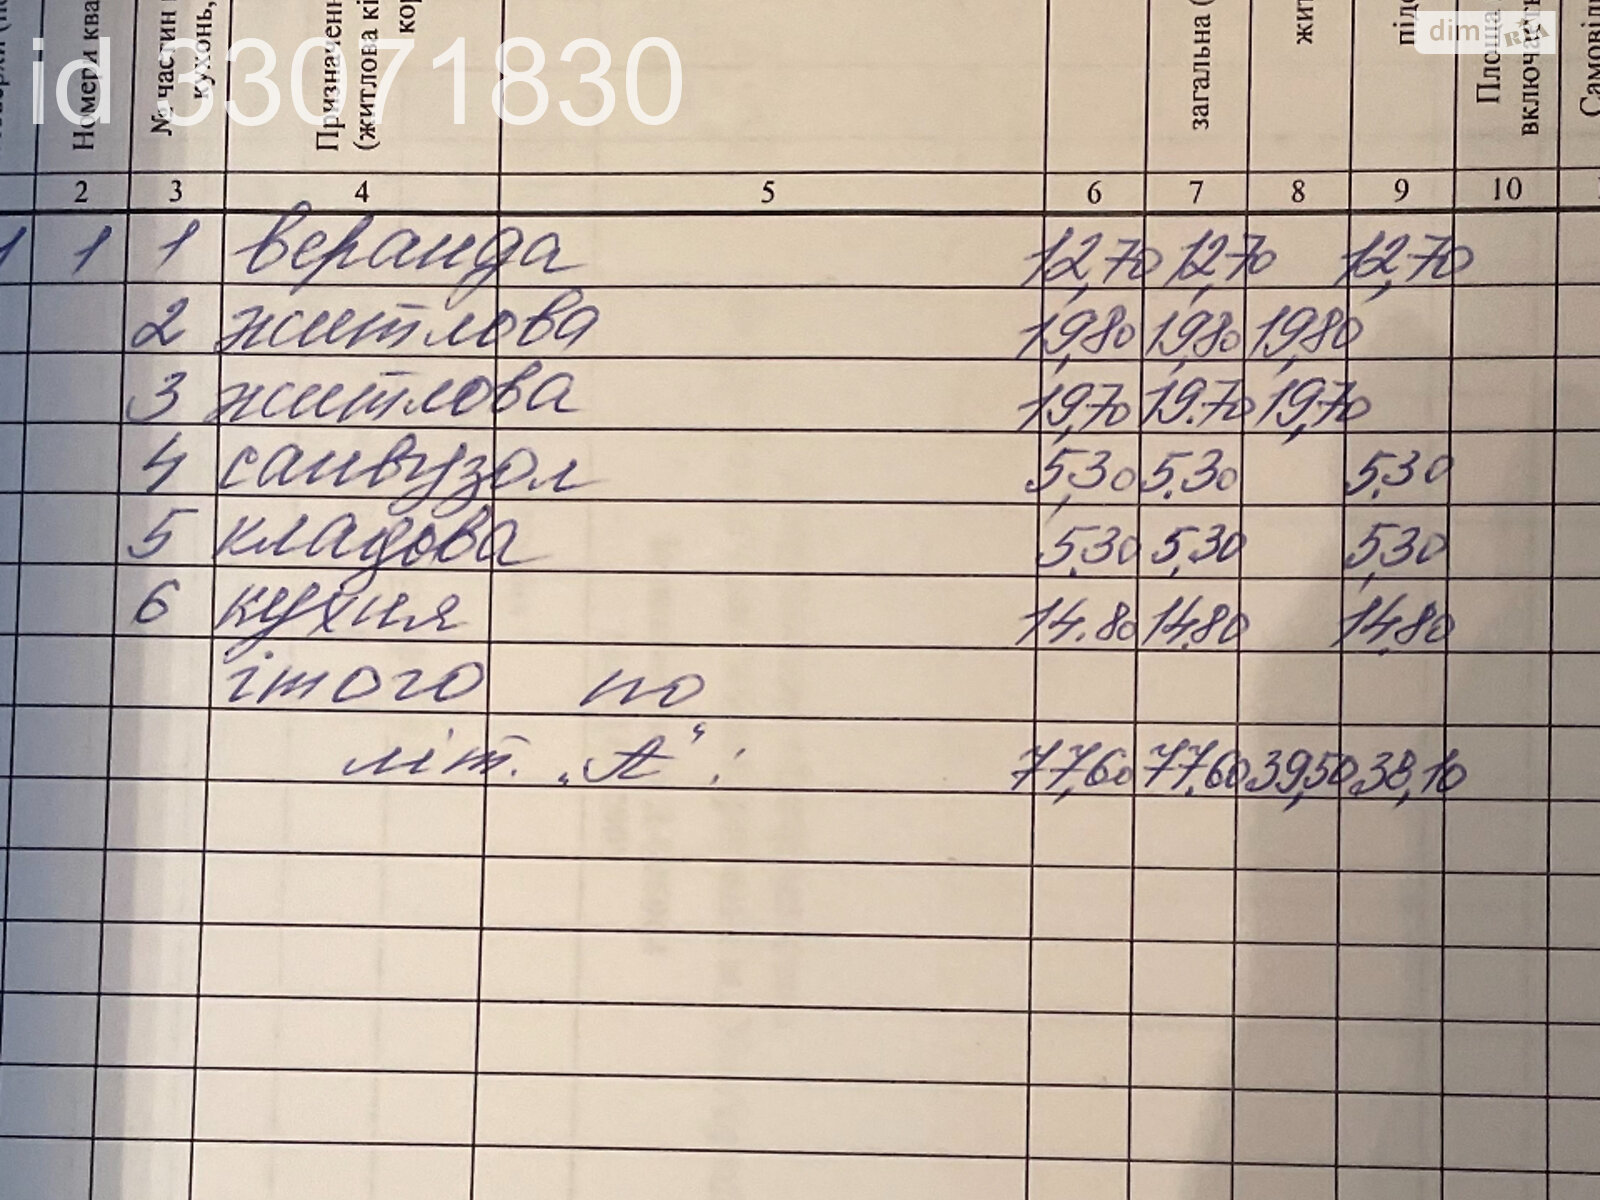 id 33071830
dim RIA
Номери ква
№ частин
кухонь,
Призначенн
(житлова кі
кор
загальна (
жит
підс
Площа
включаєть
Самовіль
2 3 4 5 6 7 8 9 10
1 1 1 веранда 12,70 12,70 12,70
2 житлова 19,80 19,80 19,80
3 житлова 19,70 19.70 19,70
4 санвузол 5,30 5.30 5.30
5 кладова 5.30 5,30 5,30
6 кухня 14.80 14.80 14,80
ітого по
літ. „А“: 77,60 77.60 39,50 38,10